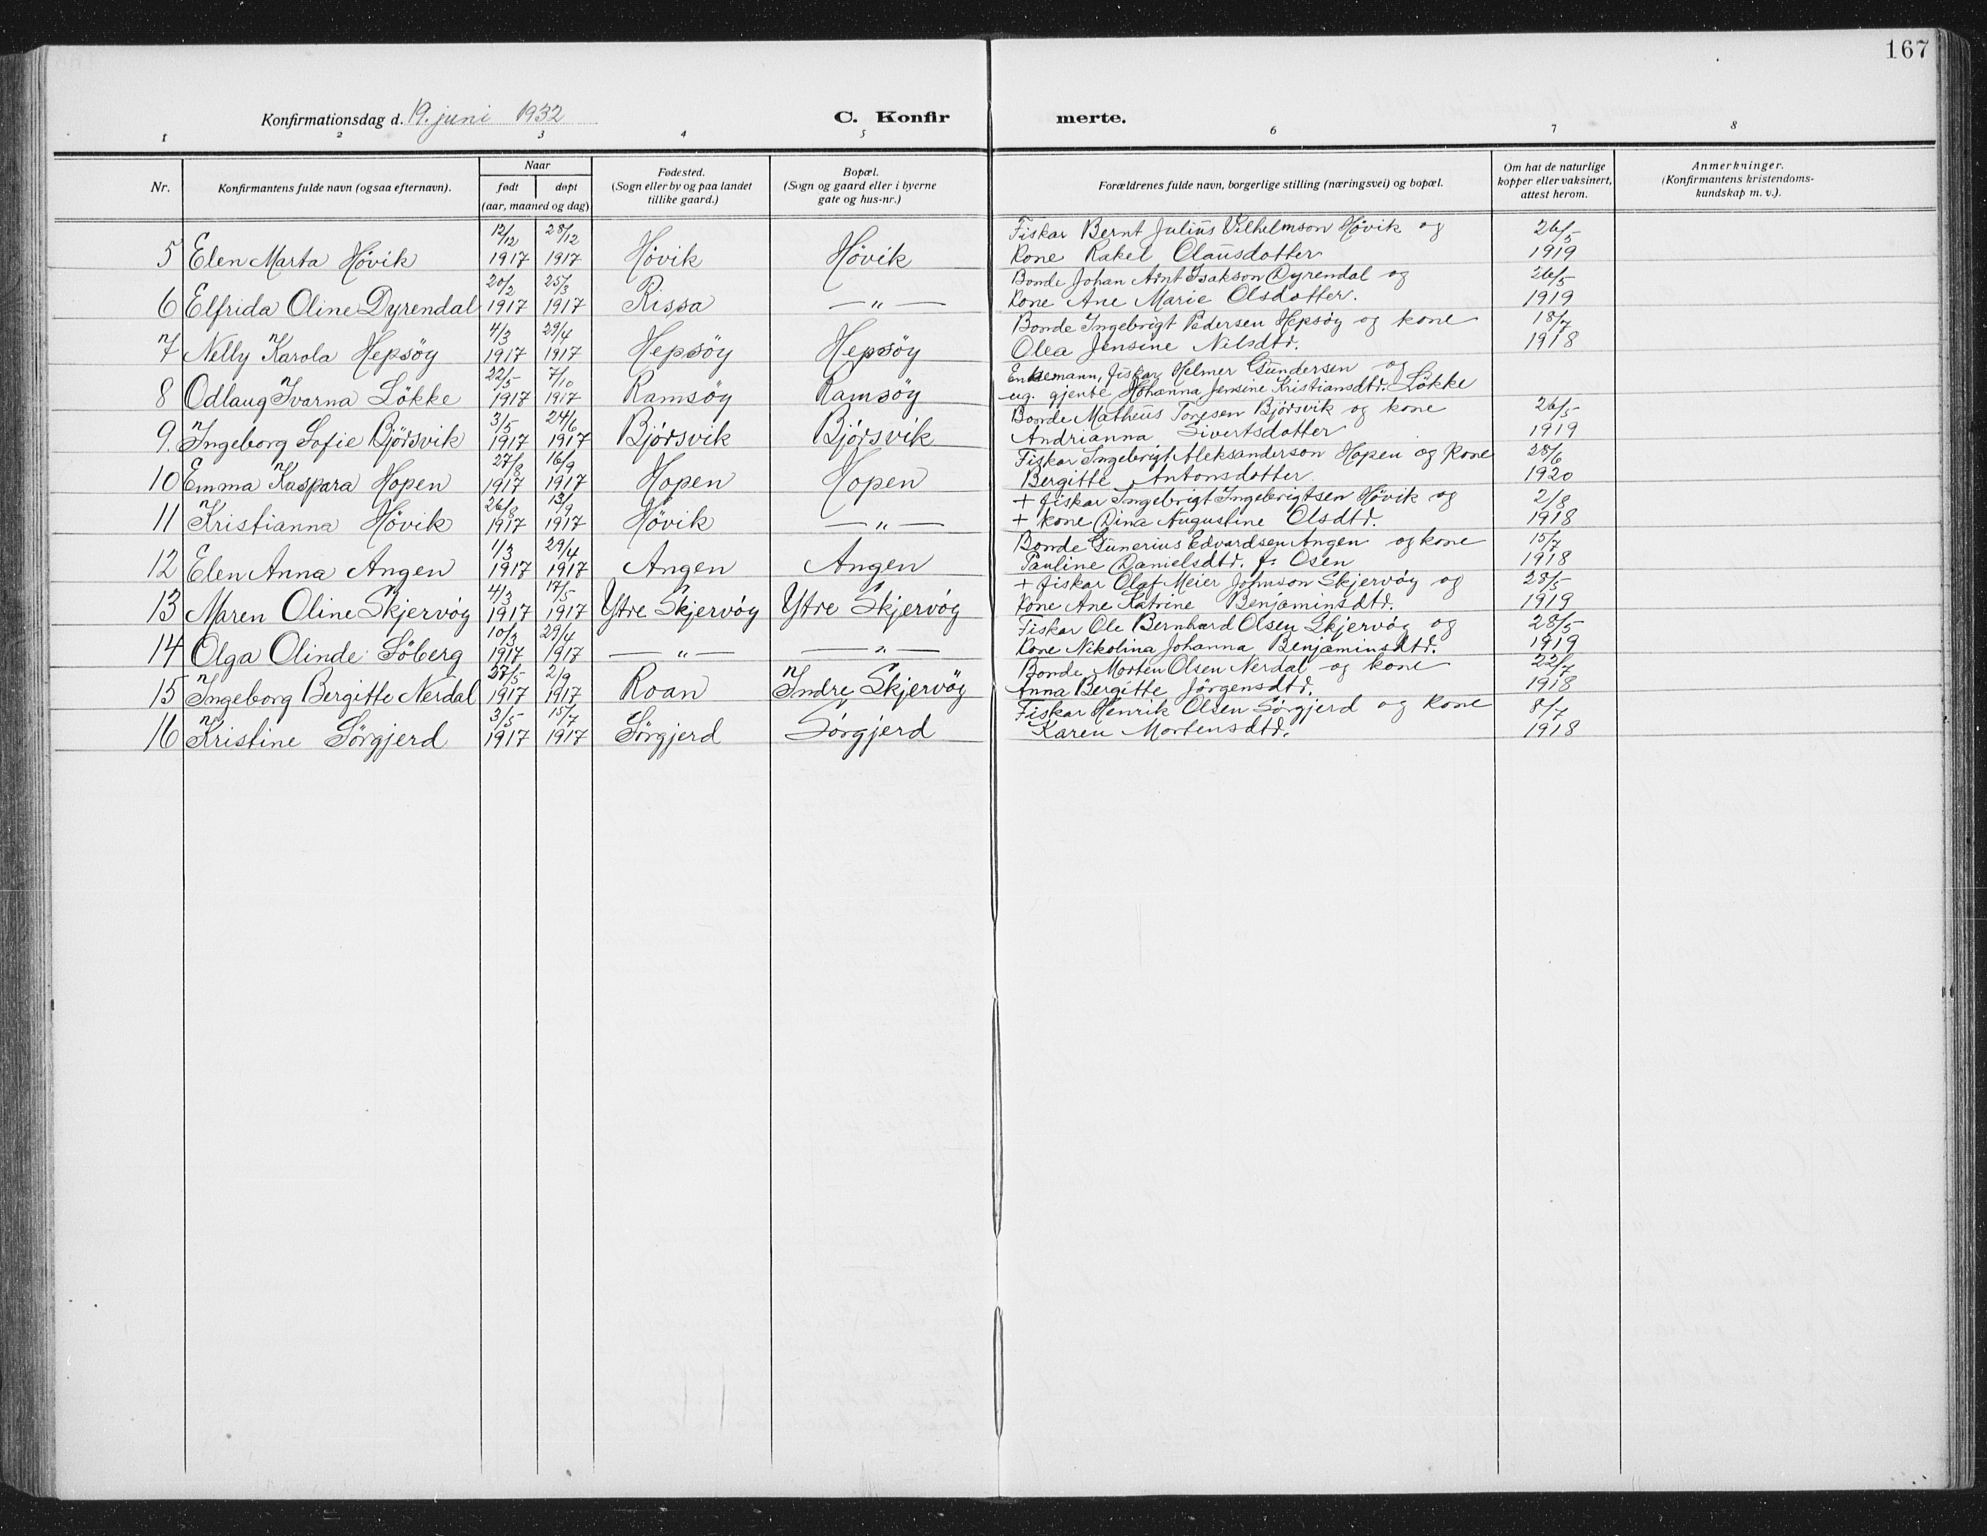 167
Konfirmationsdag d. 19. juni 1932 C. Konfirmerte.
1 2 3 4 5 6 7 8
Nr. Konfirmantens fulde navn (ogsaa efternavn). Naar født døpt (aar, maaned og dag) Fødested. (Sogn eller by og paa landet tillike gaard.) Bopæl. (Sogn og gaard eller i byerne gate og hus-nr.) Forældrenes fulde navn, borgerlige stilling (næringsvei) og bopæl. Om hat de naturlige kopper eller vaksinert, attest herom. Anmerkninger. (Konfirmantens kristendomskundskap m. v.).
12/12 28/12 Fiskar Bernt Julius Vilhelmson Hövik og 26/5
5 Elen Marta Hövik 1917 1917 Hövik Hövik kone Rakel Clausdotter 1919
20/2 25/3 Bonde Johan Arnt Isakson Dyrendal og 26/5
6 Elfrida Oline Dyrendal 1917 1917 Rissa — " — kone Ane Marie Olsdotter. 1919
4/3 29/4 Bonde Ingebrigt Pedersen Hepsöy og kone 18/7
7 Nelly Karola Hepsöy 1917 1917 Hepsöy Hepsöy Olea Jensine Nilsdtd. 1918
22/5 7/10 Enkemann, fiskar Helmer Gundersen og
8 Odlaug Ivarna Lökke 1917 1917 Ramsöy Ramsöy ug. gjente Johanna Jensine Kristiansdtd. Lökke
3/5 24/6 Bonde Matheus Toresen Bjørsvik og kone 26/5
9. Ingeborg Sofie Bjørsvik 1917 1917 Bjørsvik Bjørsvik Andrianna Sivertsdotter 1919
27/8 16/9 Fiskar Ingebrigt Aleksanderson Hopen og kone 28/6
10 Emma Kaspara Hopen 1917 1917 Hopen Hopen Bergitte Antonsdotter 1920
26/8 13/9 + fiskar Ingebrigt Ingebrigtsen Hövik og 2/8
11 Kristianna Hövik 1917 1917 Hövik — " — + kone Dina Augustine Olsdtd. 1918
1/3 29/4 Bonde Gunerius Edvardsen Angen og kone 15/7
12 Elen Anna Angen 1917 1917 Angen Angen Pauline Danielsdtd. f. Osen 1918
4/3 17/5 + fiskar Olaf Meier Johnson Skjervöy og 28/5
13 Maren Oline Skjervöy 1917 1917 Ytre Skjervöy Ytre Skjervöy kone Ane Katrine Benjaminsdtd. 1919
10/3 29/4 Fiskar Ole Bernhard Olsen Skjervöy og 28/5
14 Olga Olinde Söberg 1917 1917 — " — — " — kone Nikolina Johanna Benjaminsdtd. 1919
27/5 2/9 Bonde Morten Olsen Nerdal og kone 22/7
15 Ingeborg Bergitte Nerdal 1917 1917 Roan Indre Skjervöy Anna Bergitte Jörgensdtd. 1918
3/5 15/7 Fiskar Henrik Olsen Sörgjerd og kone 8/7
16 Kristine Sörgjerd 1917 1917 Sörgjerd Sörgjerd Karen Mortensdtd. 1918